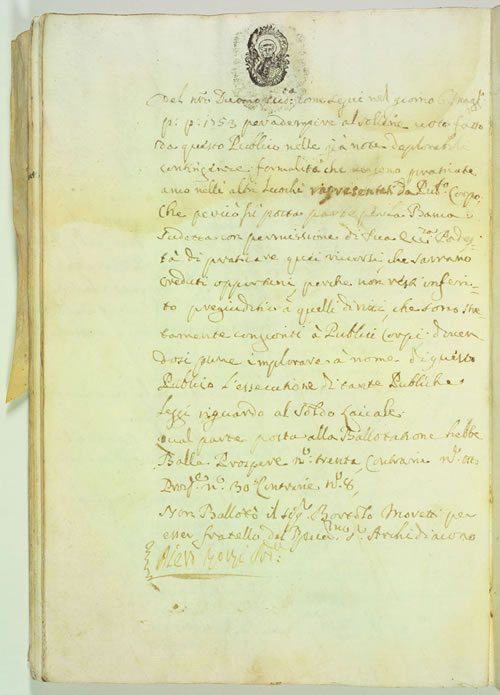 del nro Duomo come seguì nel giorno 6 Magg:
p: p: 1753 per adempire al solene uoto fatto
da questo Publico nelle già note deplorabili
contingenze, formalità che uengono praticate
anco nelli altri Luochi rapresentati da Pub:o Corpo,
Che perciò fù posta parte
Sudetta con permissione di Sua Ecc:za Podes-
tà di praticare quei ricorsi, che sarrano
creduti opportuni, perche non resti inferri-
to pregiuditio à quelli diritti, che sono stre-
tamente congionti à Publici Corpi. douen-
dosi pure implorare à nome di questo
Publico l'essecutione di tante Publiche
Leggi riguardo al Soldo Laicale.
qual parte posta alla Ballotatione hebbe
Balla Prospere n:o trenta, Contrarie n:o otto
Prosp:e n:o 30 Contrarie n:o 8,
Non Ballotò il sig:r Moretti per
esser fratello del s:r Archidiacono